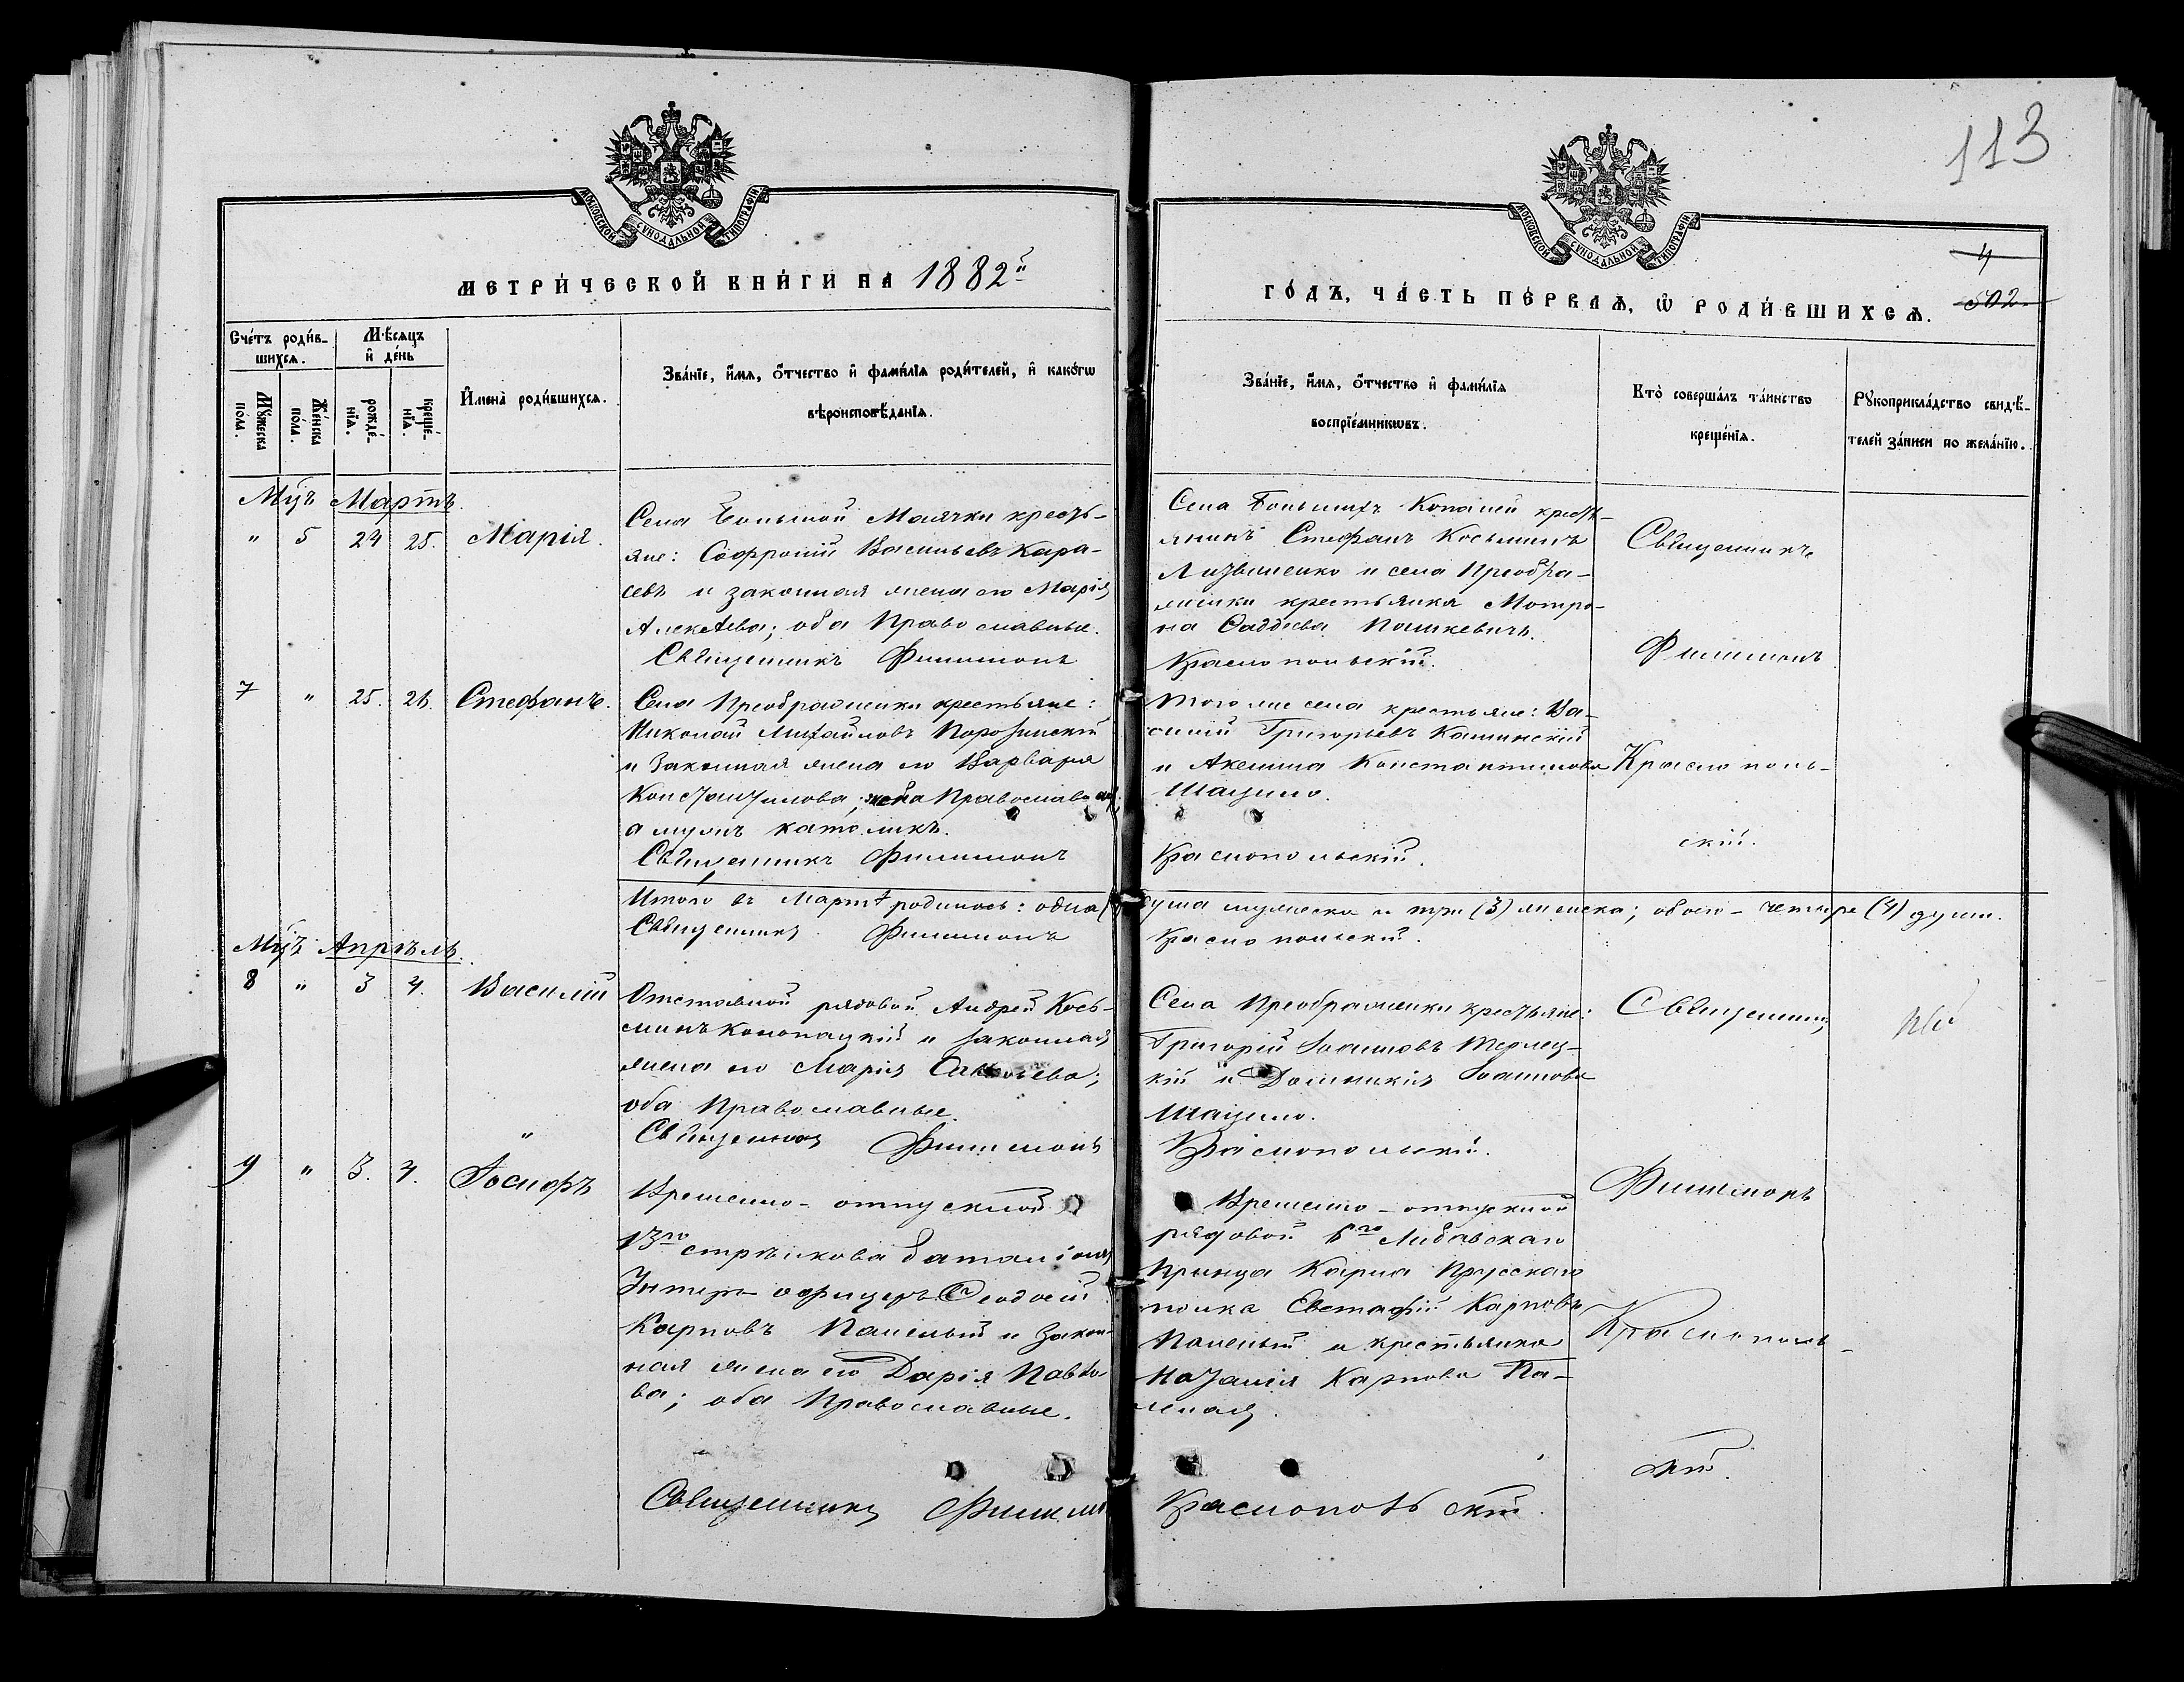 113
МОСКОВСКОЙ СѴНОДАЛЬНОЙ ТИПОГРАФІИ
МОСКОВСКОЙ СѴНОДАЛЬНОЙ ТИПОГРАФІИ
МЕТРИ́ЧЕСКОЙ КНИ́ГИ НА 1882й
ГО́ДЪ, ЧА́СТЬ ПЕ́РВАѦ, Ѡ҆ РОДИ́ВШИХСѦ.
4
502
Сче́тъ роди́в-
шихсѧ.
Мѣ́сѧцъ
и҆ де́нь
Мꙋ́жеска
по́ла.
Же́нска
по́ла.
рожде́-
нїѧ.
креще́-
нїѧ.
И҆мена̀ роди́вшихсѧ.
Зва́нїе, и҆́мѧ, ѻ҆́тчество и҆ фами́лїѧ роди́телей, и҆ како́гѡ
вѣроисповѣ́данїѧ.
Зва́нїе, и҆́мѧ, ѻ҆́тчество и҆ фами́лїѧ
воспрїе́мникѡвъ.
Кто̀ соверша́лъ та́инство
креще́нїѧ.
Рꙋкоприкла́дство свидѣ́-
телей за́писи по жела́нїю.
Мцъ Мартъ.
" 5 24 25. Марія.
Села Большой Маячки кресть-
яне: Софроній Васильевъ Кара-
севъ и законная жена его Марія
Алексѣева; оба Православные.
Священникъ Филимонъ
Села Большихъ Копаней кресть-
янинъ Стефанъ Косьминъ
и села Преобра-
женки крестьянка Мотро-
на Фаддѣева Пашкевичъ.
Краснопольскій.
Священникъ
Филимонъ
Краснополь-
скій.
7 " 25. 26. Стефанъ.
Села Преображенки крестьяне:
Николай Михайловъ
и законная жена его Варвара
Константинова; жена Православная,
а мужъ католикъ.
Священникъ Филимонъ
Того же села крестьяне: Ва-
силій Григорьевъ Калинскій
и Акелина Константинова
Шацило.
Краснопольскій.
Итого въ Мартѣ родилось: одна (1) душа мужеска и три (3) женска; обоего – четыре (4) души.
Священникъ Филимонъ Краснопольскій.
Мцъ Апрѣль.
8 " 3 4. Василій
Отставной рядовой Андрей Кось-
минъ Конопацкій и законная
жена его Марія
оба Православные.
Священникъ Филимонъ
Села Преображенки крестьяне:
Григорій Іоанновъ Терлец-
кій и Домникія Іоаннова
Шацило.
Краснопольскій.
Священникъ
Филимонъ
Краснополь-
скій.
9 " 3. 4. Іосифъ
Временно-отпускной
13го стрѣлкова баталіона
Унтеръ офицеръ Ѳеодосій
Карповъ и закон-
ная жена его Дарія Павло-
ва; оба Православные.
Временно-отпускной
рядовой 6го Либавскаго
Принца Карла Прусскаго
полка Евстафій Карповъ
и крестьянка
Наталія Карпова
Священникъ Филимонъ Краснопольскій.